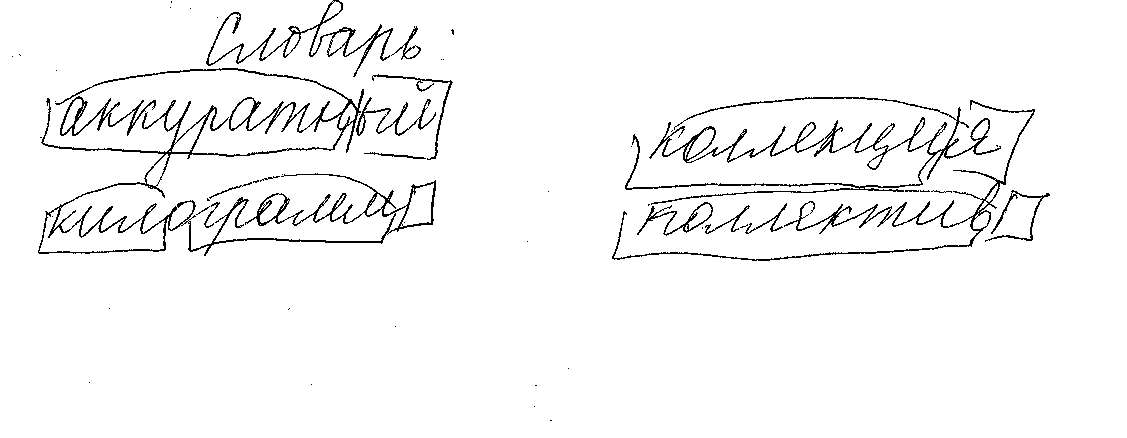 Словарь
аккуратный
килограмм
коллекция
коллектив